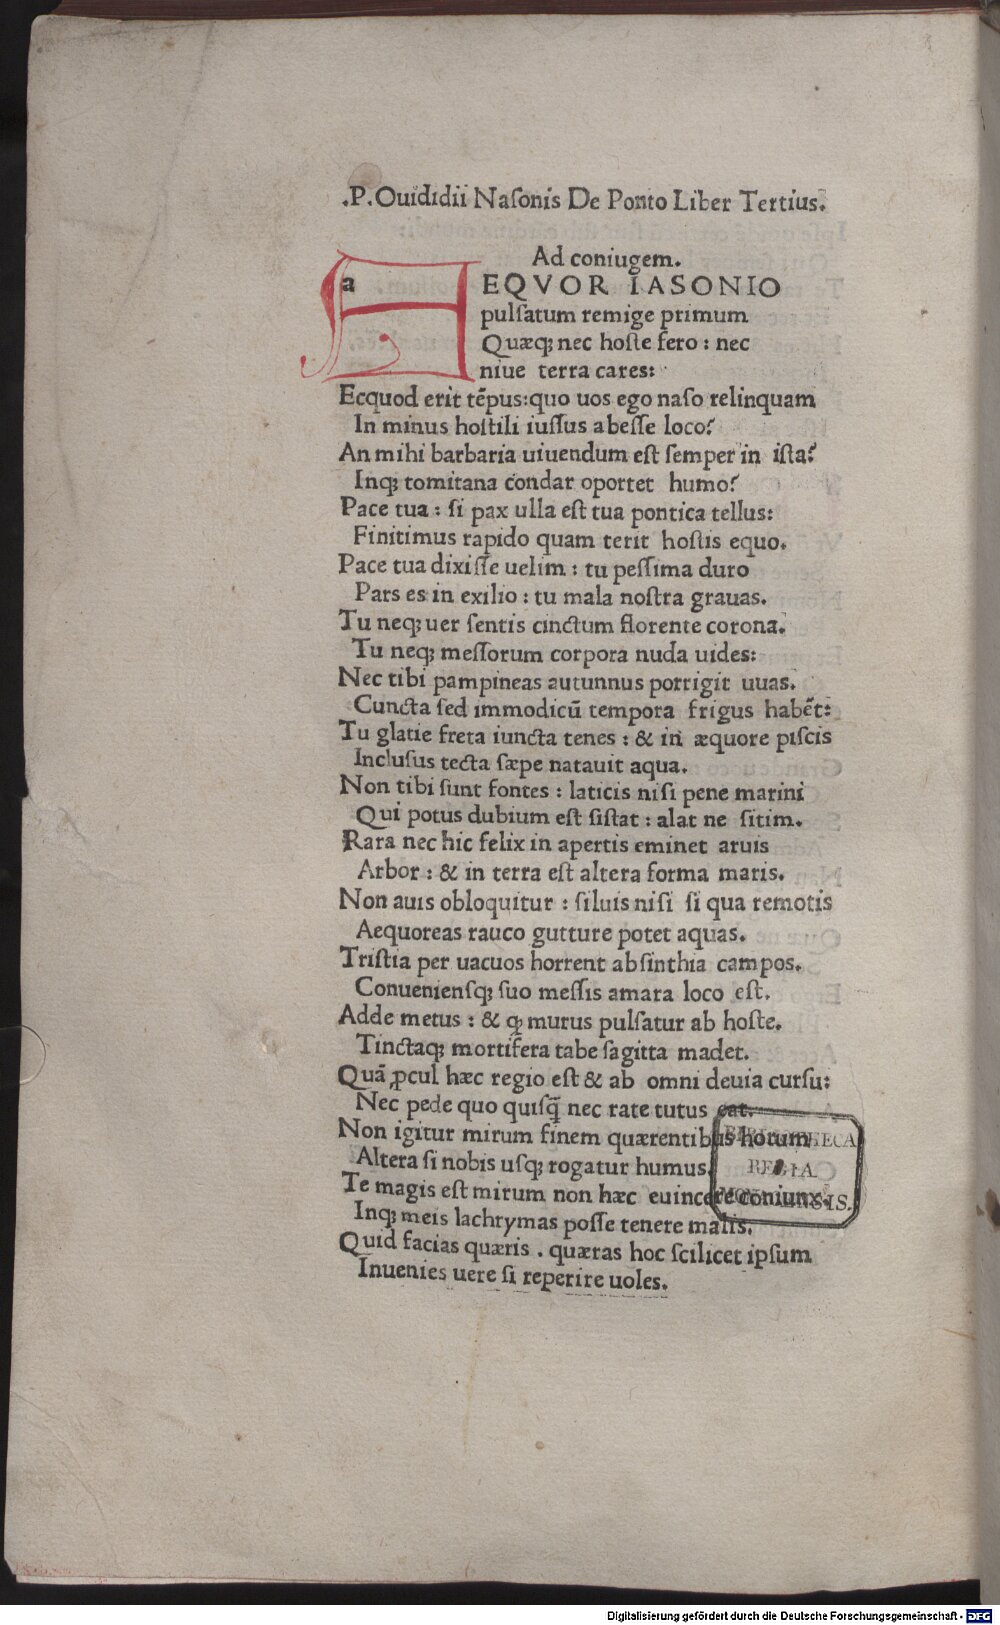 .P. Ouididii Naſonis De Ponto Liber Tertius.
Ad coniugem.
a EQVOR IASONIO
pulſatum remige primum
Quæq; nec hoſte fero : nec
niue terra cares:
Ecquod erit tēpus:quo uos ego naſo relinquam
In minus hoſtili iuſſus abeſſe loco?
An mihi barbaria uiuendum eſt ſemper in iſta?
Inq; tomitana condar oportet humo?
Pace tua : ſi pax ulla eſt tua pontica tellus:
Finitimus rapido quam terit hoſtis equo.
Pace tua dixiſſe uelim : tu peſſima duro
Pars es in exilio : tu mala noſtra grauas.
Tu neq; uer ſentis cinctum florente corona.
Tu neq; meſſorum corpora nuda uides:
Nec tibi pampineas autunnus porrigit uuas.
Cuncta ſed immodicū tempora frigus habēt:
Tu glatie freta iuncta tenes : & in æquore piſcis
Incluſus tecta ſæpe natauit aqua.
Non tibi ſunt fontes : laticis niſi pene marini
Qui potus dubium eſt ſiſtat : alat ne ſitim.
Rara nec hic felix in apertis eminet aruis
Arbor : & in terra eſt altera forma maris.
Non auis obloquitur : ſiluis niſi ſi qua remotis
Aequoreas rauco gutture potet aquas.
Triſtia per uacuos horrent abſinthia campos.
Conuenienſq; ſuo meſſis amara loco eſt.
Adde metus : & q; murus pulſatur ab hoſte.
Tinctaq; mortifera tabe ſagitta madet.
Quā ꝓcul hæc regio eſt & ab omni deuia curſu:
Nec pede quo quiſq̄ nec rate tutus eat.
Non igitur mirum finem quærentibus horum
Altera ſi nobis uſq; rogatur humus.
Te magis eſt mirum non hæc euincere coniunx.
Inq; meis lachrymas poſſe tenere malis.
Quid facias quæris . quæras hoc ſcilicet ipſum
Inuenies uere ſi reperire uoles.
BIBLIOTHECA
REGIA
MONACENSIS.
Digitalisierung gefördert durch die Deutsche Forschungsgemeinschaft - DFG